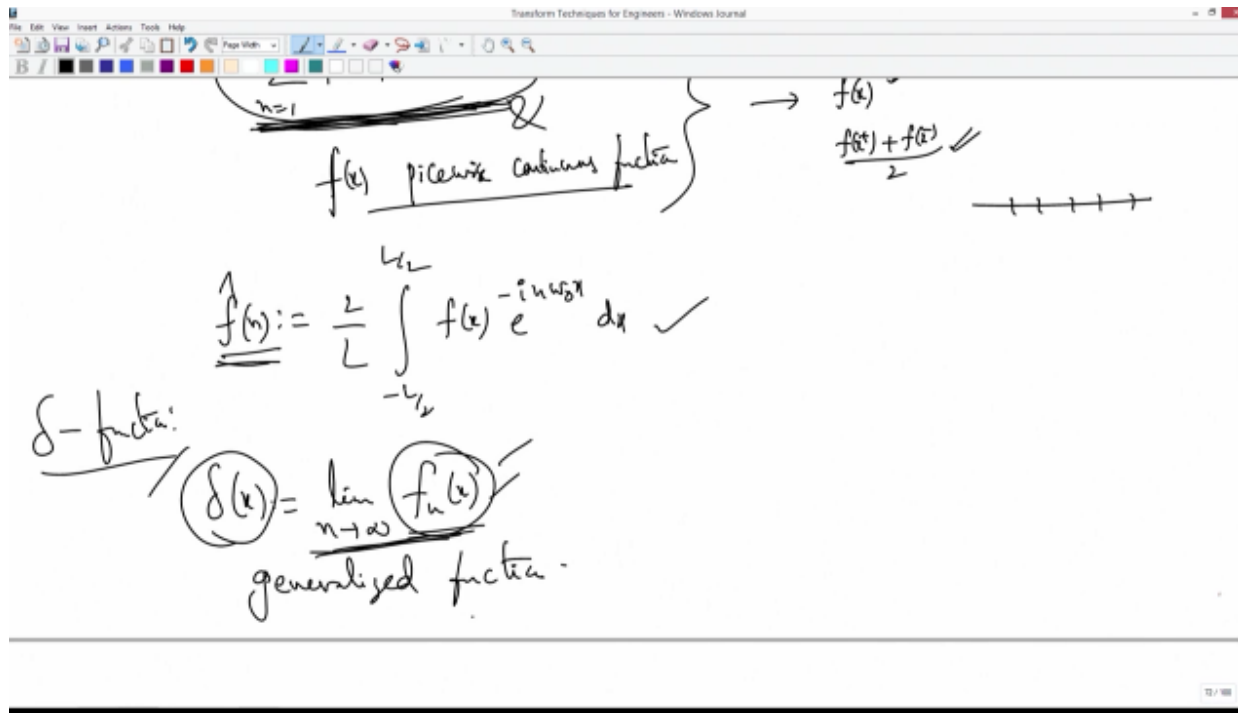 Transform Techniques for Engineers - Windows Journal
File Edit View Insert Actions Tools Help
Page Width
B I
n=1
&
f(x) picewise continuous function } → f(x)
f(x⁺) + f(x⁻) / 2
f̂(n) := 2/L ∫_{-L/2}^{L/2} f(x) e^{-inω₀x} dx ✓
δ- function:
δ(x) = lim_{n→∞} f_n(x)
generalized function.
72 / 100